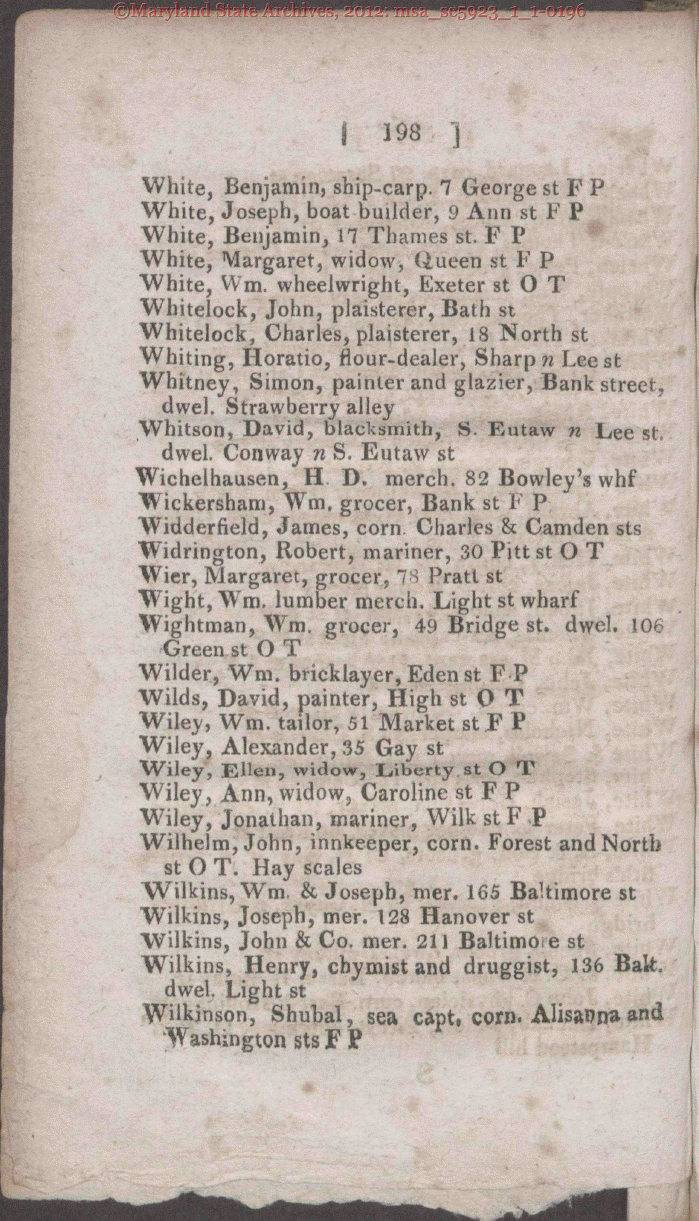 ©Maryland State Archives, 2012: msa_sc5923_1_1-0196
[ 198 ]
White, Benjamin, ship-carp. 7 George st F P
White, Joseph, boat builder, 9 Ann st F P
White, Benjamin, 17 Thames st. F P
White, Margaret, widow, Queen st F P
White, Wm. wheelwright, Exeter st O T
Whitelock, John, plaisterer, Bath st
Whitelock, Charles, plaisterer, 18 North st
Whiting, Horatio, flour-dealer, Sharp n Lee st
Whitney, Simon, painter and glazier, Bank street,
dwel. Strawberry alley
Whitson, David, blacksmith, S. Eutaw n Lee st.
dwel. Conway n S. Eutaw st
Wichelhausen, H. D. merch. 82 Bowley's whf
Wickersham, Wm. grocer, Bank st F P
Widderfield, James, corn. Charles & Camden sts
Widrington, Robert, mariner, 30 Pitt st O T
Wier, Margaret, grocer, 78 Pratt st
Wight, Wm. lumber merch. Light st wharf
Wightman, Wm. grocer, 49 Bridge st. dwel. 106
Green st O T
Wilder, Wm. bricklayer, Eden st F P
Wilds, David, painter, High st O T
Wiley, Wm. tailor, 51 Market st F P
Wiley, Alexander, 35 Gay st
Wiley, Ellen, widow, Liberty st O T
Wiley, Ann, widow, Caroline st F P
Wiley, Jonathan, mariner, Wilk st F P
Wilhelm, John, innkeeper, corn. Forest and North
st O T. Hay scales
Wilkins, Wm. & Joseph, mer. 165 Baltimore st
Wilkins, Joseph, mer. 128 Hanover st
Wilkins, John & Co. mer. 211 Baltimore st
Wilkins, Henry, chymist and druggist, 136 Balt.
dwel. Light st
Wilkinson, Shubal, sea capt. corn. Alisanna and
Washington sts F P